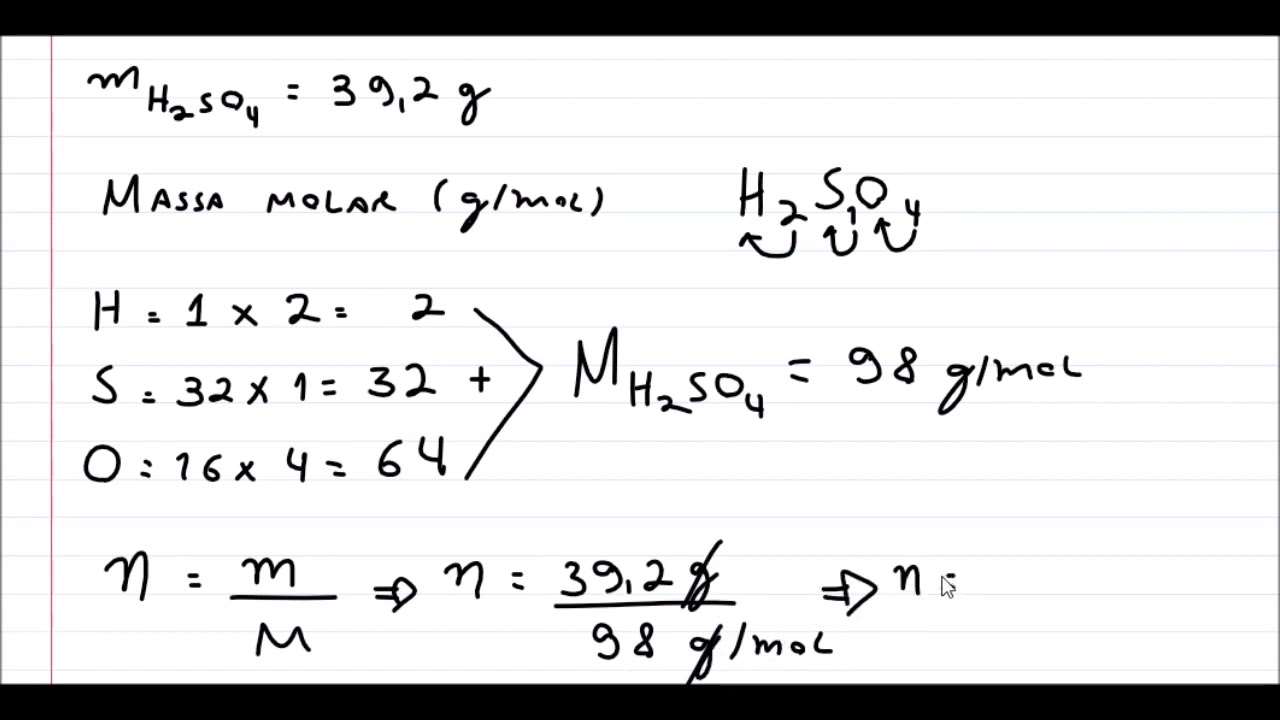 m H₂SO₄ = 39,2 g
MASSA MOLAR (g/mol) H₂S₁O₄
H = 1 x 2 = 2
S = 32 x 1 = 32 +
O = 16 x 4 = 64
M H₂SO₄ = 98 g/mol
n = m/M ⇒ n = 39,2 g / 98 g/mol ⇒ n =